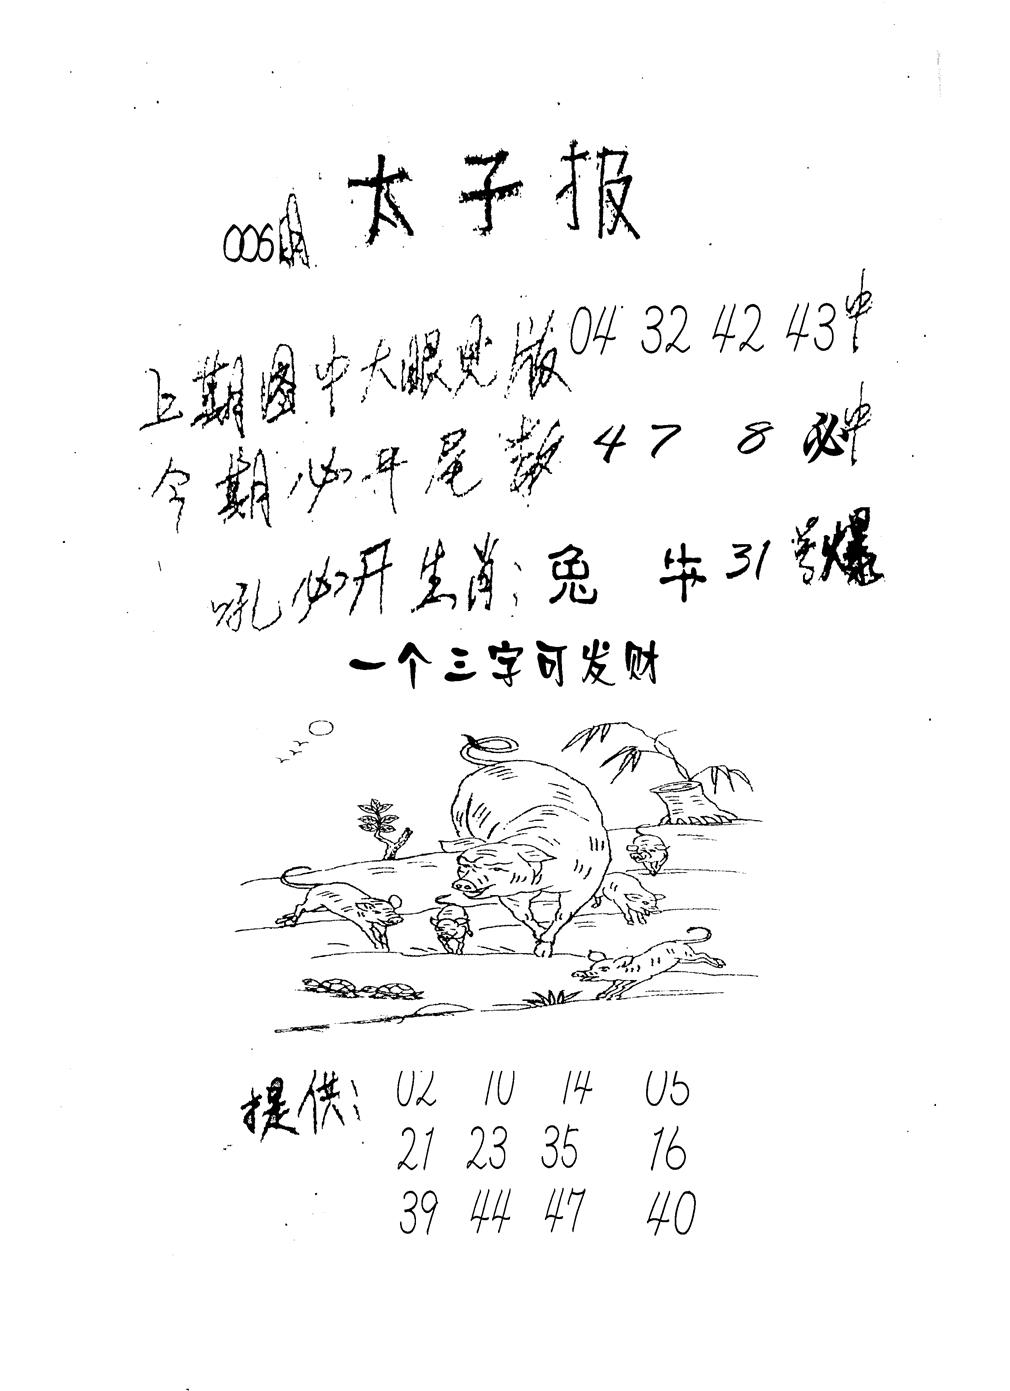 太子报
006期
上期图中大眼见版04 32 42 43中
今期必开尾数 4 7 8 必中
吼必开生肖：兔 牛 31号爆
一个三字可发财
提供： 02 10 14 05
21 23 35 16
39 44 47 40